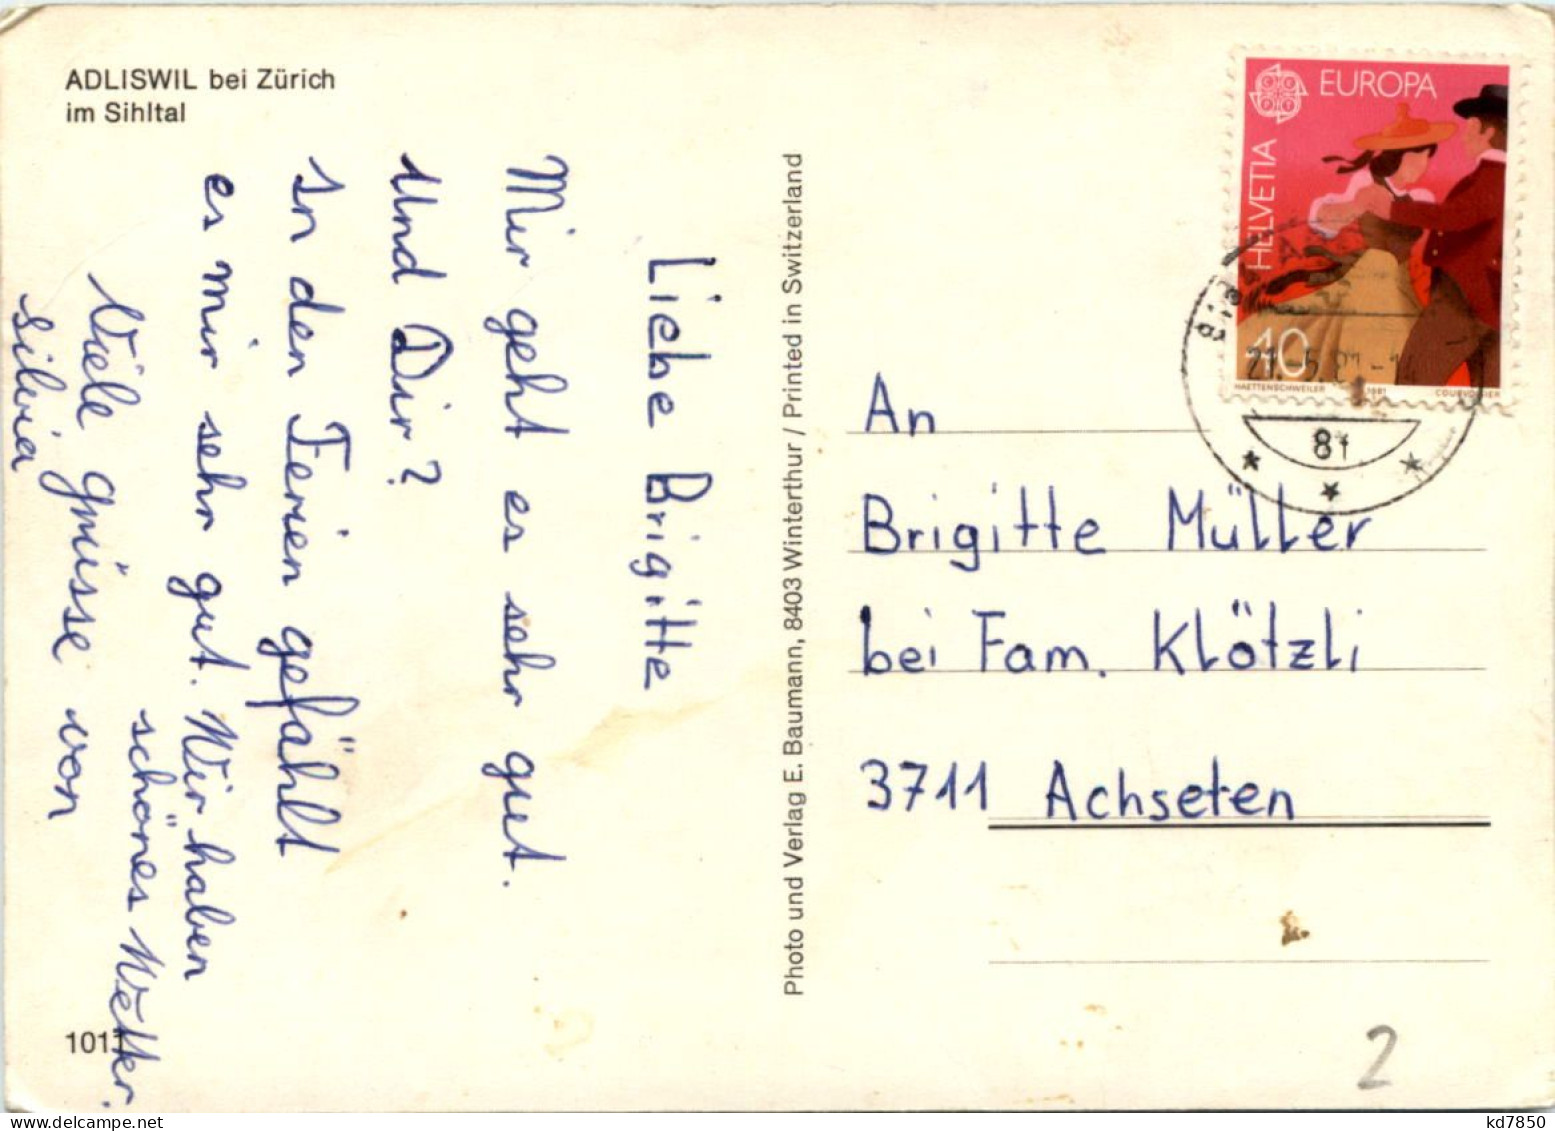 ADLISWIL bei Zürich
im Sihltal
Liebe Brigitte
Mir geht es sehr gut.
Und Dir?
In den Ferien gefählt
es mir sehr gut. Wir haben
schönes Wetter.
Viele grüsse von
Silvia
1011
Photo und Verlag E. Baumann, 8403 Winterthur / Printed in Switzerland
EUROPA
HELVETIA
40
HAETTENSCHWEILER 1981 COURVOISIER
81
An
Brigitte Müller
bei Fam. Klötzli
3711 Achseten
2
kd7850